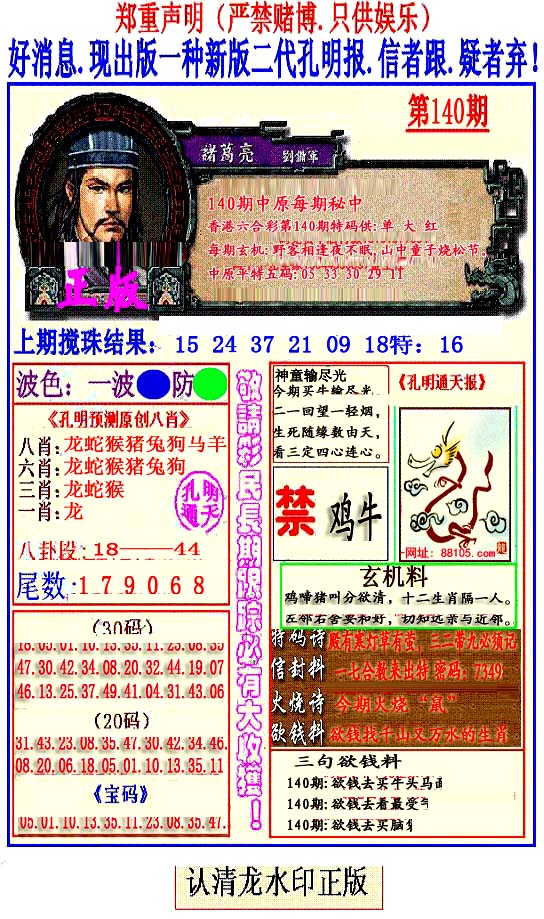 郑重声明（严禁赌博.只供娱乐）
好消息.现出版一种新版二代孔明报.信者跟.疑者弃!
第140期
諸葛亮 劉備軍
140期中原每期秘中
香港六合彩第140期特码供:单 大 红
每期玄机:野客相逢夜不眠,山中童子烧松节。
中原平特五码:05 33 30 29 11
正版
上期搅珠结果: 15 24 37 21 09 18特: 16
波色: 一波 防
《孔明预测原创八肖》
八肖:龙蛇猴猪兔狗马羊
六肖:龙蛇猴猪兔狗
三肖:龙蛇猴
一肖:龙
孔明通天
八卦段:18——44
尾数:179068
(30码)
18.05.01.10.13.35.11.23.08.35
47.30.42.34.08.20.32.44.19.07
46.13.25.37.49.41.04.31.43.06
(20码)
31.43.23.08.35.47.30.42.34.46.
08.20.06.18.05.01.10.13.35.11
《宝码》
05.01.10.13.35.11.23.08.35.47.
敬請彩民長期跟踪必有大收獲!
神童输尽光
今期买牛输尽光
二一回望一轻烟,
生死随缘数由天,
看三定四心连心。
《孔明通天报》
网址: 88105.com
龍
禁 鸡牛
玄机料
鸡啼猪叫分欲清，十二生肖隔一人。
左邻右舍要和好，切知远亲与近邻。
特码诗 殿有寒灯草有萤，三二带九必须记
信封料 一七合数来出特 密码: 7349
火烧诗 今期火烧“鼠”
欲钱料 欲钱找千山又万水的生肖
三句欲钱料
140期:欲钱去买牛头马面
140期:欲钱去看最受
140期:欲钱去买脑
认清龙水印正版